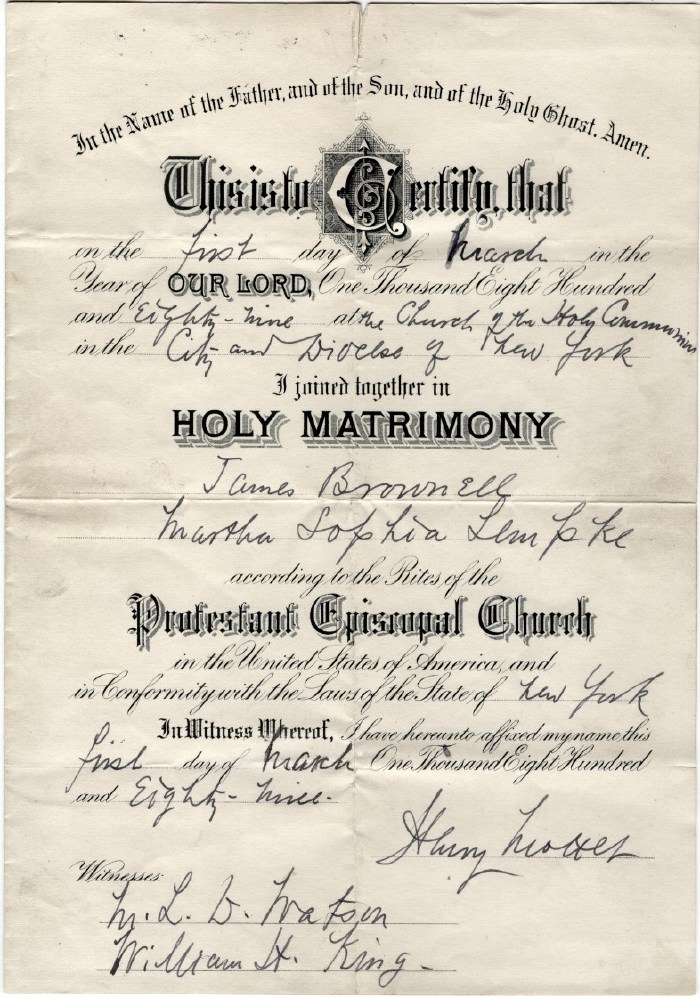 In the Name of the Father, and of the Son, and of the Holy Ghost. Amen.
This is to Certify, that
on the first day of March in the
Year of OUR LORD, One Thousand Eight Hundred
and Eighty-nine at the Church of the Holy Communion
in the City and Diocese of New York
I joined together in
HOLY MATRIMONY
James Brownell
Martha Sophia Lempke
according to the Rites of the
Protestant Episcopal Church
in the United States of America, and
in Conformity with the Laws of the State of New York
In Witness Whereof, I have hereunto affixed my name this
first day of March One Thousand Eight Hundred
and Eighty-nine.
Henry Mottet
Witnesses:
M. L. D. Watson
William H. King